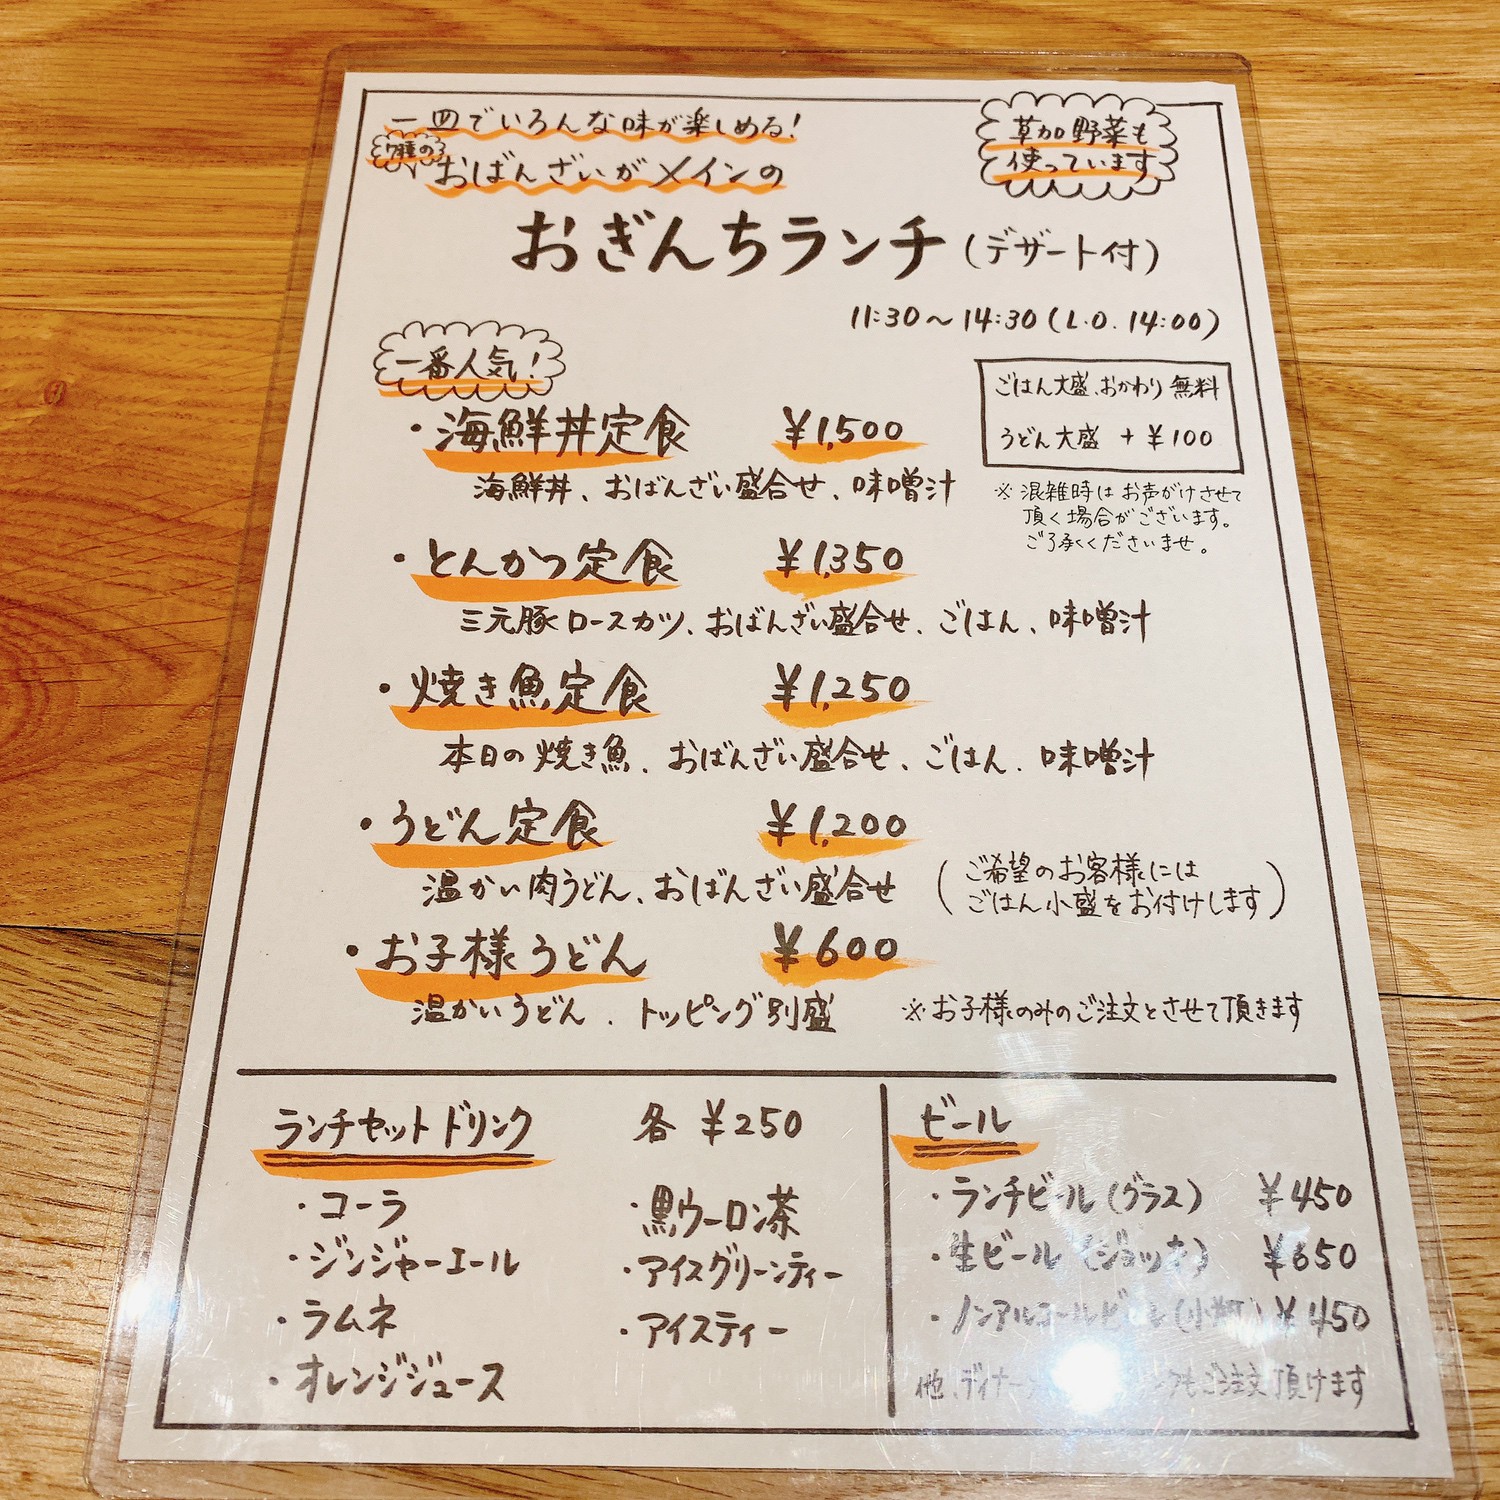 一皿でいろんな味が楽しめる!
7種の
おばんざいがメインの
草加野菜も
使っています
おぎんちランチ(デザート付)
11:30〜14:30(L.O.14:00)
一番人気!
ごはん大盛、おかわり無料
うどん大盛 +¥100
※混雑時はお声がけさせて
頂く場合がございます。
ご了承くださいませ。
・海鮮丼定食 ¥1,500
海鮮丼、おばんざい盛合せ、味噌汁
・とんかつ定食 ¥1,350
三元豚ロースカツ、おばんざい盛合せ、ごはん、味噌汁
・焼き魚定食 ¥1,250
本日の焼き魚、おばんざい盛合せ、ごはん、味噌汁
・うどん定食 ¥1,200
温かい肉うどん、おばんざい盛合せ
(ご希望のお客様には
ごはん小盛をお付けします)
・お子様うどん ¥600
温かいうどん、トッピング別盛 ※お子様のみのご注文とさせて頂きます
ランチセットドリンク 各 ¥250
・コーラ
・ジンジャーエール
・ラムネ
・オレンジジュース
・黒ウーロン茶
・アイスグリーンティー
・アイスティー
ビール
・ランチビール(グラス) ¥450
・生ビール(ジョッキ) ¥650
・ノンアルコールビール(小瓶) ¥450
他、ディナー もご注文頂けます